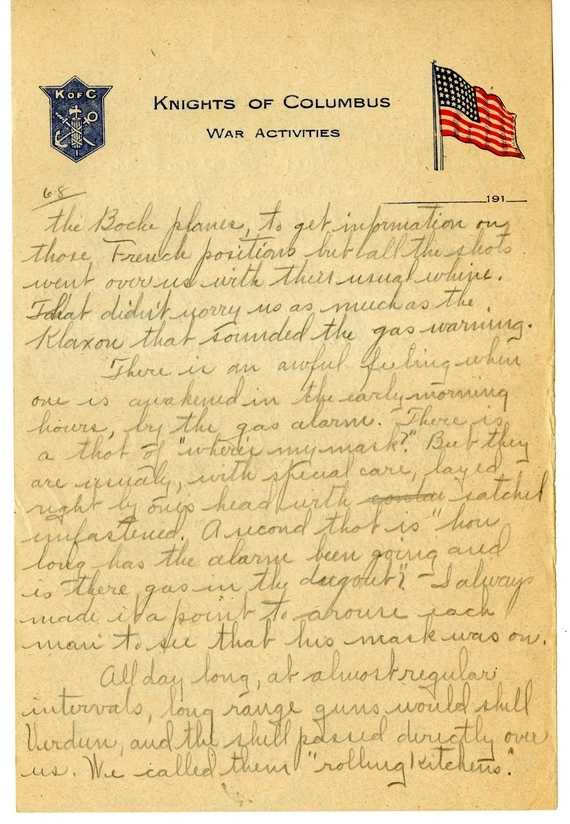 K of C
KNIGHTS OF COLUMBUS
WAR ACTIVITIES
68
191
the Boche planes, to get information on
those French positions but all the shots
went over us with their usual whine.
That didn't worry us as much as the
Klaxon that sounded the gas warning.
There is an awful feeling when
one is awakened in the early morning
hours, by the gas alarm. There is
a thot of "where's my mask?" But they
are usualy, with special care, layed
right by one's head with satchel
unfastened. A second thot is "how
long has the alarm been going and
is there gas in the dugout"? - I always
made it a point to arouse each
man to see that his mask was on.
All day long, at almost regular
intervals, long range guns would shell
Verdun, and the shell passed directly over
us. We called them "rolling kitchens".